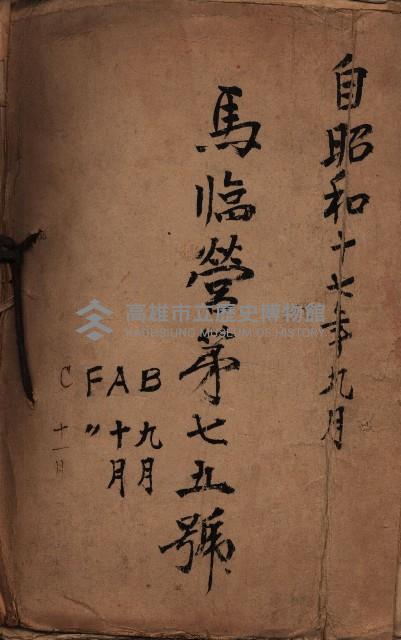 自昭和十七年九月
馬臨營第七五號
B 九月
A 十月
F 〃
C 十一月
高雄市立歷史博物館
KAOHSIUNG MUSEUM OF HISTORY